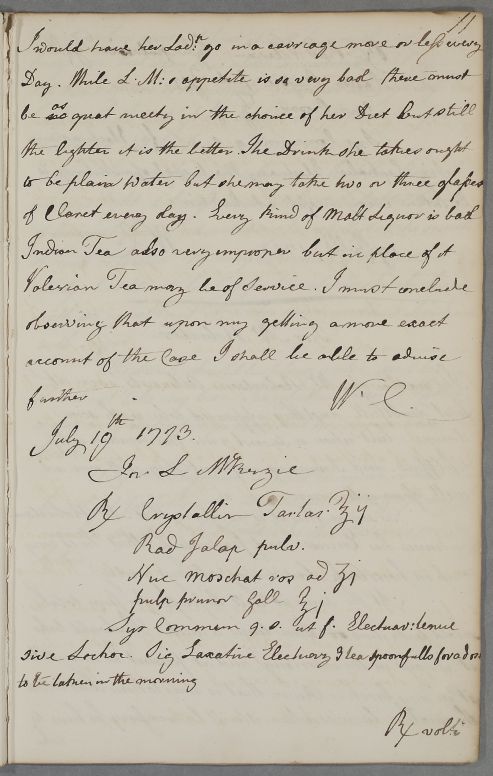 11
I would have her Lad.p go in a carriage more or less every
Day. While L: M:s appetite is so very bad there must
be as great nicety in the choice of her Diet but still
the lighter it is the better. The Drink she takes ought
to be plain Water but she may take two or three glasses
of Claret every day. Every kind of Malt Liquor is bad
Indian Tea also very improper but in place of it
Valerian Tea may be of Service. I must conclude
observing that upon my getting a more exact
account of the Case I shall be able to advise
further
W. C.
July 19th 1773.
For L McKenzie
℞ Crystallin Tartar ʒij
Rad Jalap pulv.
Nuc moschat ras ad ʒj
pulp prunor Gall ℥j
Syr Commun q. s. ut f. Electuar: tenue
sive Lochoc. Sig Laxative Electuary 3 tea spoonfulls for a dose
to be taken in the morning
℞ vol: